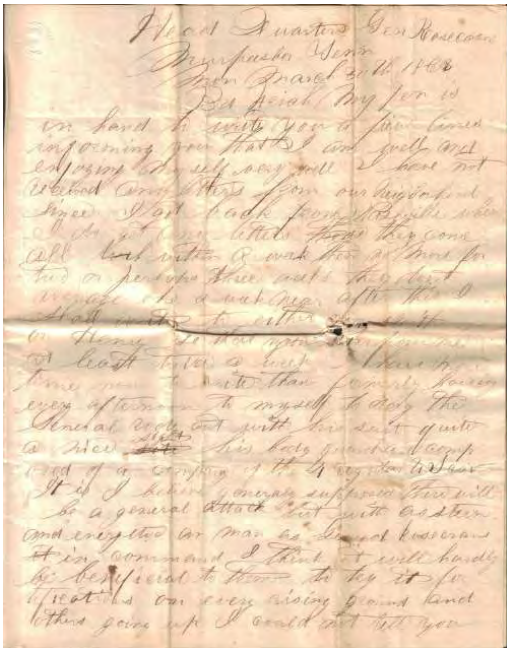 Head Quarters Gen Rosecrans
Tenn
Mon March 30th 1863
My pen is
in hand to write you a few lines
informing you that I am well and
enjoying myself very well I have not
received any letters from our
since I got back from
I do get any letters they come
all within a week then no more for
two or three weeks they don't
average one a week near after this I
shall write to either
or Henry so that you
at least twice a week I have
time now to write than formerly having
every afternoon to myself to day the
General rode out with his suit quite
a nice sight his body guard
of a company of the 4 regular
It is I believe generaly supposed there will
be a general attack but with as stern
and energetic an man as General Rosecrans
in command I think it will hardly
be beneficial to them to try it
on every rising ground and
others going up I could not tell you